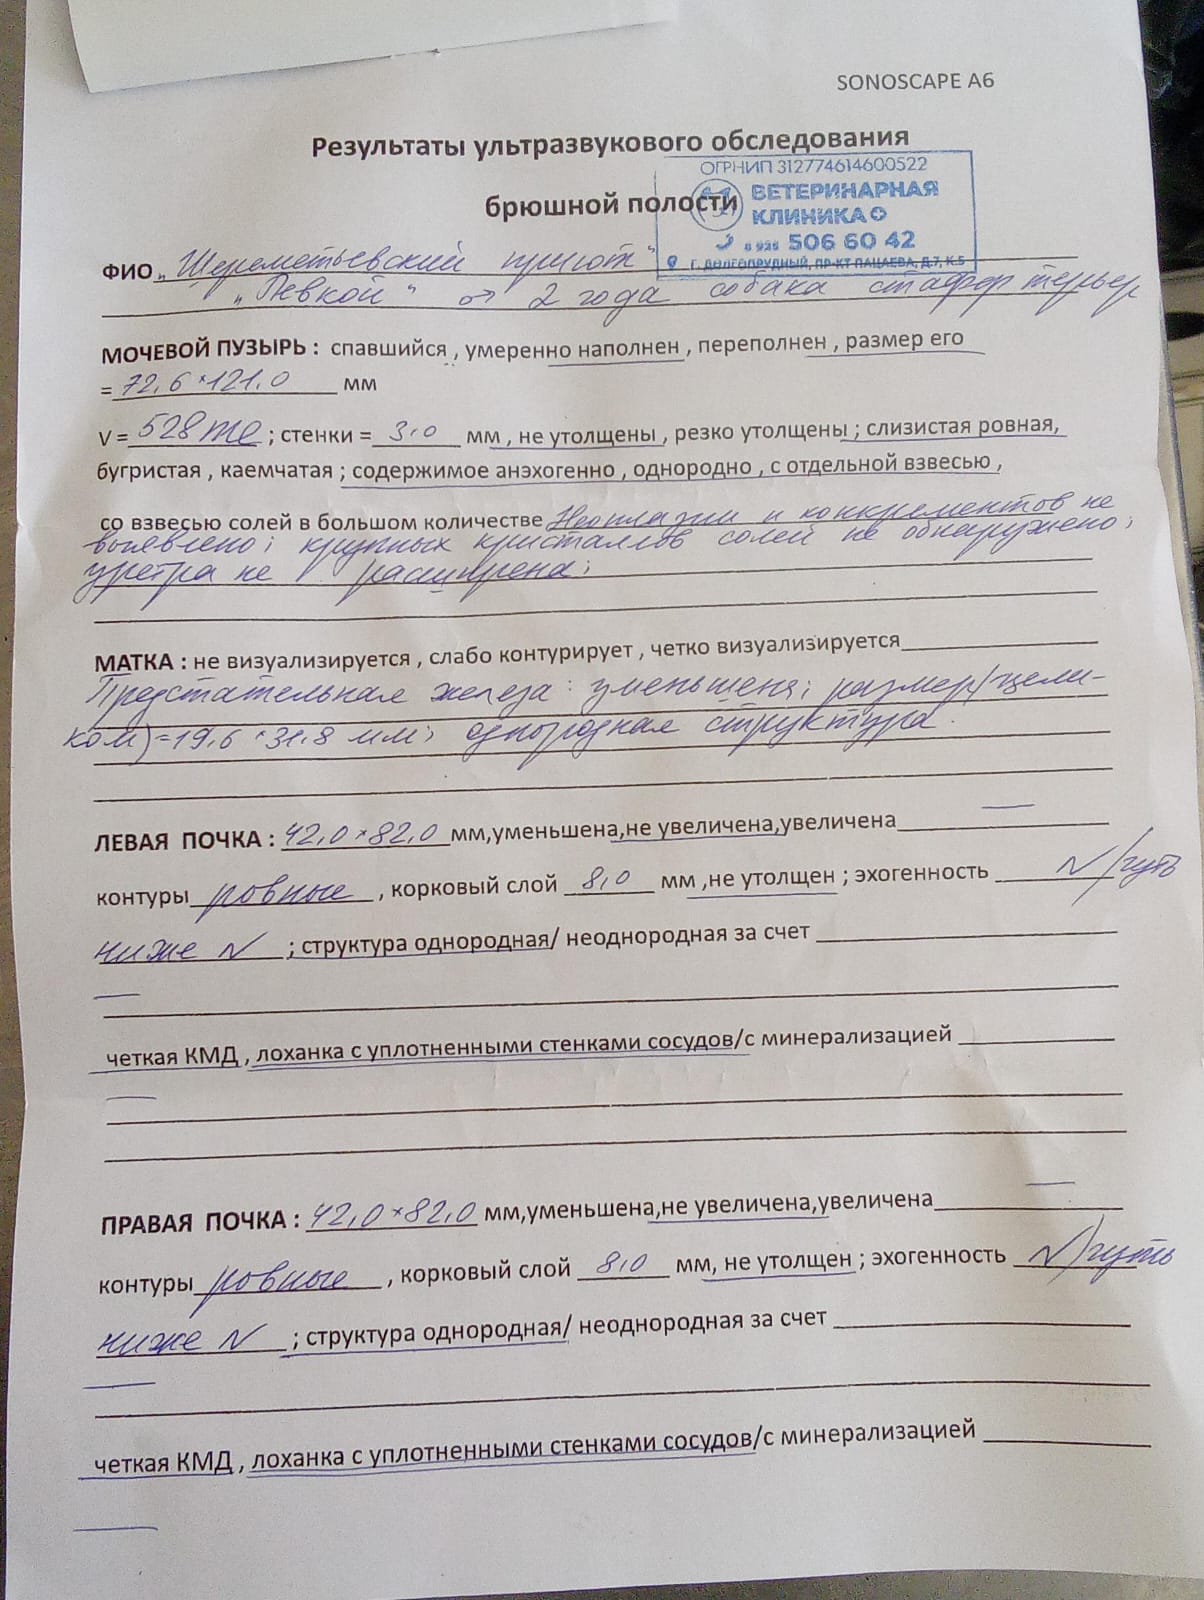 SONOSCAPE A6
Результаты ультразвукового обследования
брюшной полости
ОГРНИП 312774614600522
ВЕТЕРИНАРНАЯ
КЛИНИКА
8 925 506 60 42
Г. ДОЛГОПРУДНЫЙ, ПР-КТ ПАЦАЕВА, Д.7, К.5
ФИО „Шереметьевский приют"
„Левкой" ♂ 2 года собака стафф терьер
МОЧЕВОЙ ПУЗЫРЬ : спавшийся , умеренно наполнен , переполнен , размер его
= 72,6 × 121,0 мм
V = 528 мл ; стенки = 3,0 мм , не утолщены , резко утолщены ; слизистая ровная,
бугристая , каемчатая ; содержимое анэхогенно , однородно , с отдельной взвесью ,
со взвесью солей в большом количестве Неоплазии и конкрементов не
выявлено; крупных кристаллов солей не обнаружено;
уретра не расширена;
МАТКА : не визуализируется , слабо контурирует , четко визуализируется
Предстательная железа: уменьшена; размер/цели-
ком)=19,6 × 31,8 мм; однородная структура.
ЛЕВАЯ ПОЧКА : 42,0 × 82,0 мм,уменьшена,не увеличена,увеличена —
контуры ровные , корковый слой 8,0 мм ,не утолщен ; эхогенность N/чуть
ниже N ; структура однородная/ неоднородная за счет
—
четкая КМД , лоханка с уплотненными стенками сосудов/с минерализацией
—
ПРАВАЯ ПОЧКА : 42,0 × 82,0 мм,уменьшена,не увеличена,увеличена —
контуры ровные , корковый слой 8,0 мм, не утолщен ; эхогенность N/чуть
ниже N ; структура однородная/ неоднородная за счет
—
четкая КМД , лоханка с уплотненными стенками сосудов/с минерализацией
—